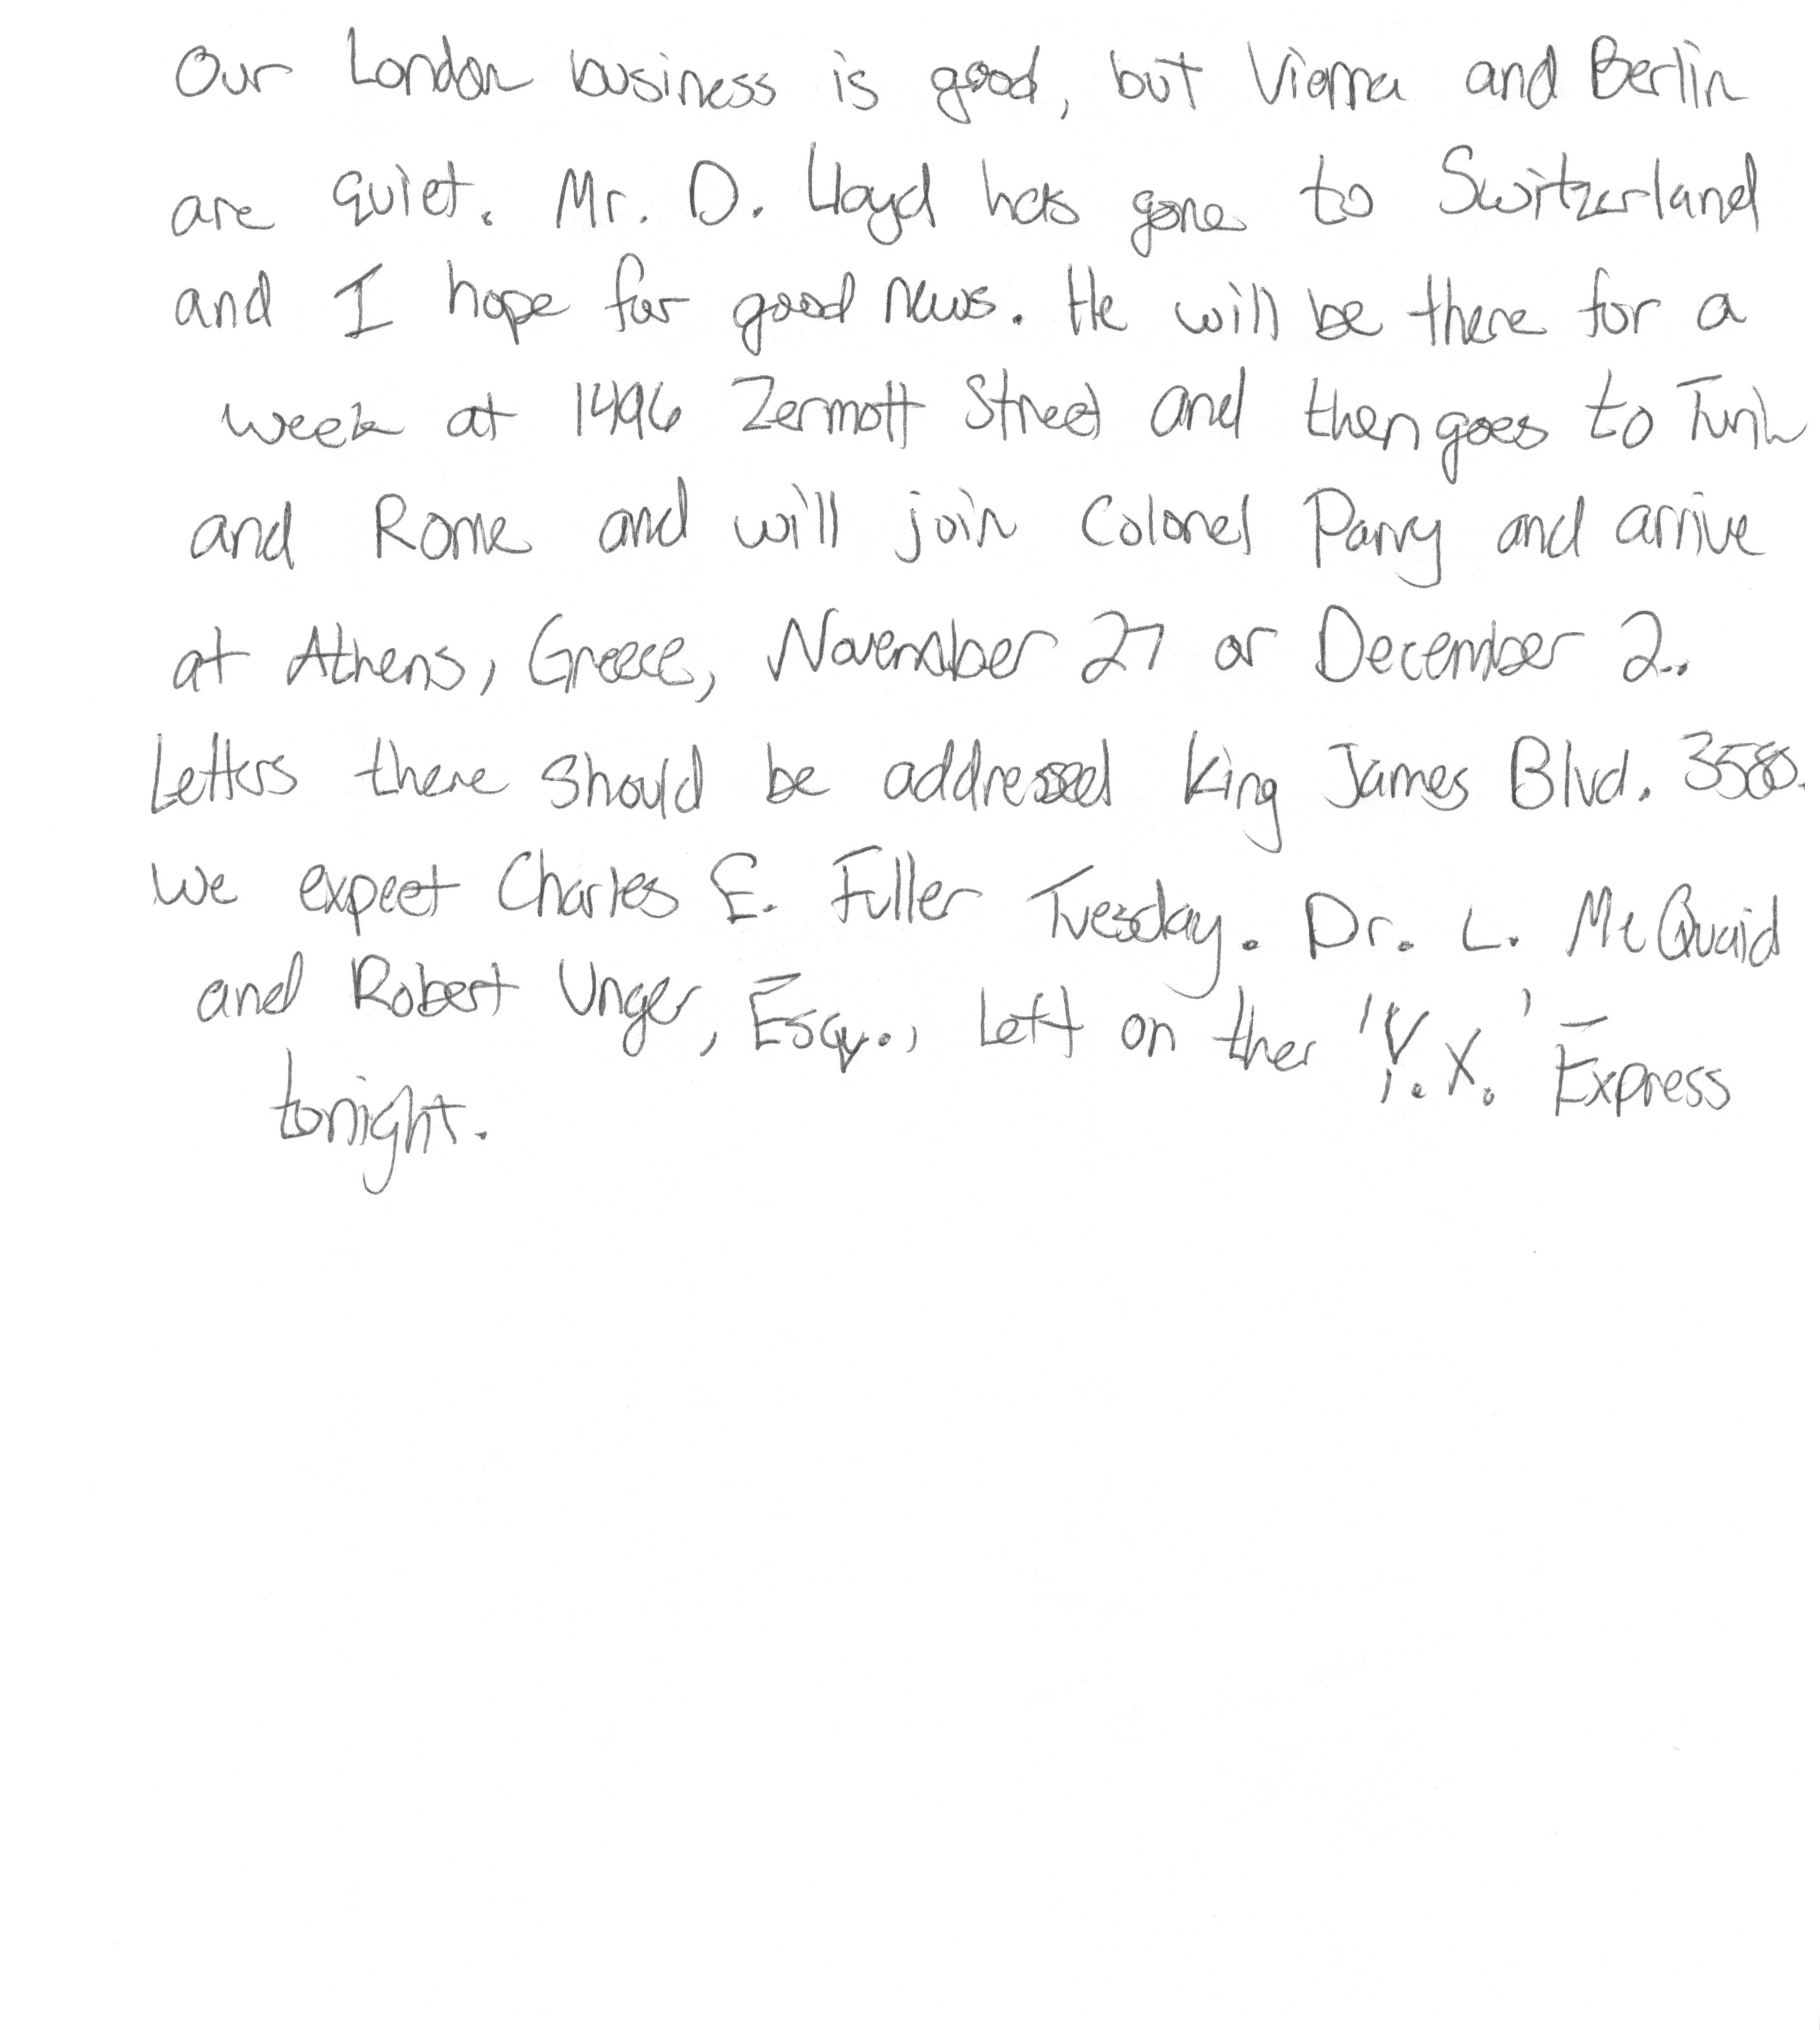 Our London business is good, but Vienna and Berlin
are quiet. Mr. D. Lloyd has gone to Switzerland
and I hope for good news. He will be there for a
week at 1496 Zermott Street and then goes to Turin
and Rome and will join Colonel Parry and arrive
at Athens, Greece, November 27 or December 2.
Letters there should be addressed King James Blvd. 3580.
We expect Charles E. Fuller Tuesday. Dr. L. McQuaid
and Robert Unger, Esqr., Left on ther 'Y.X.' Express
tonight.